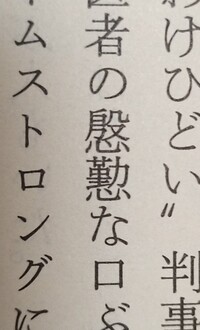 わけひどい〟判事
医者の慇懃な口ぶ
ムストロングに